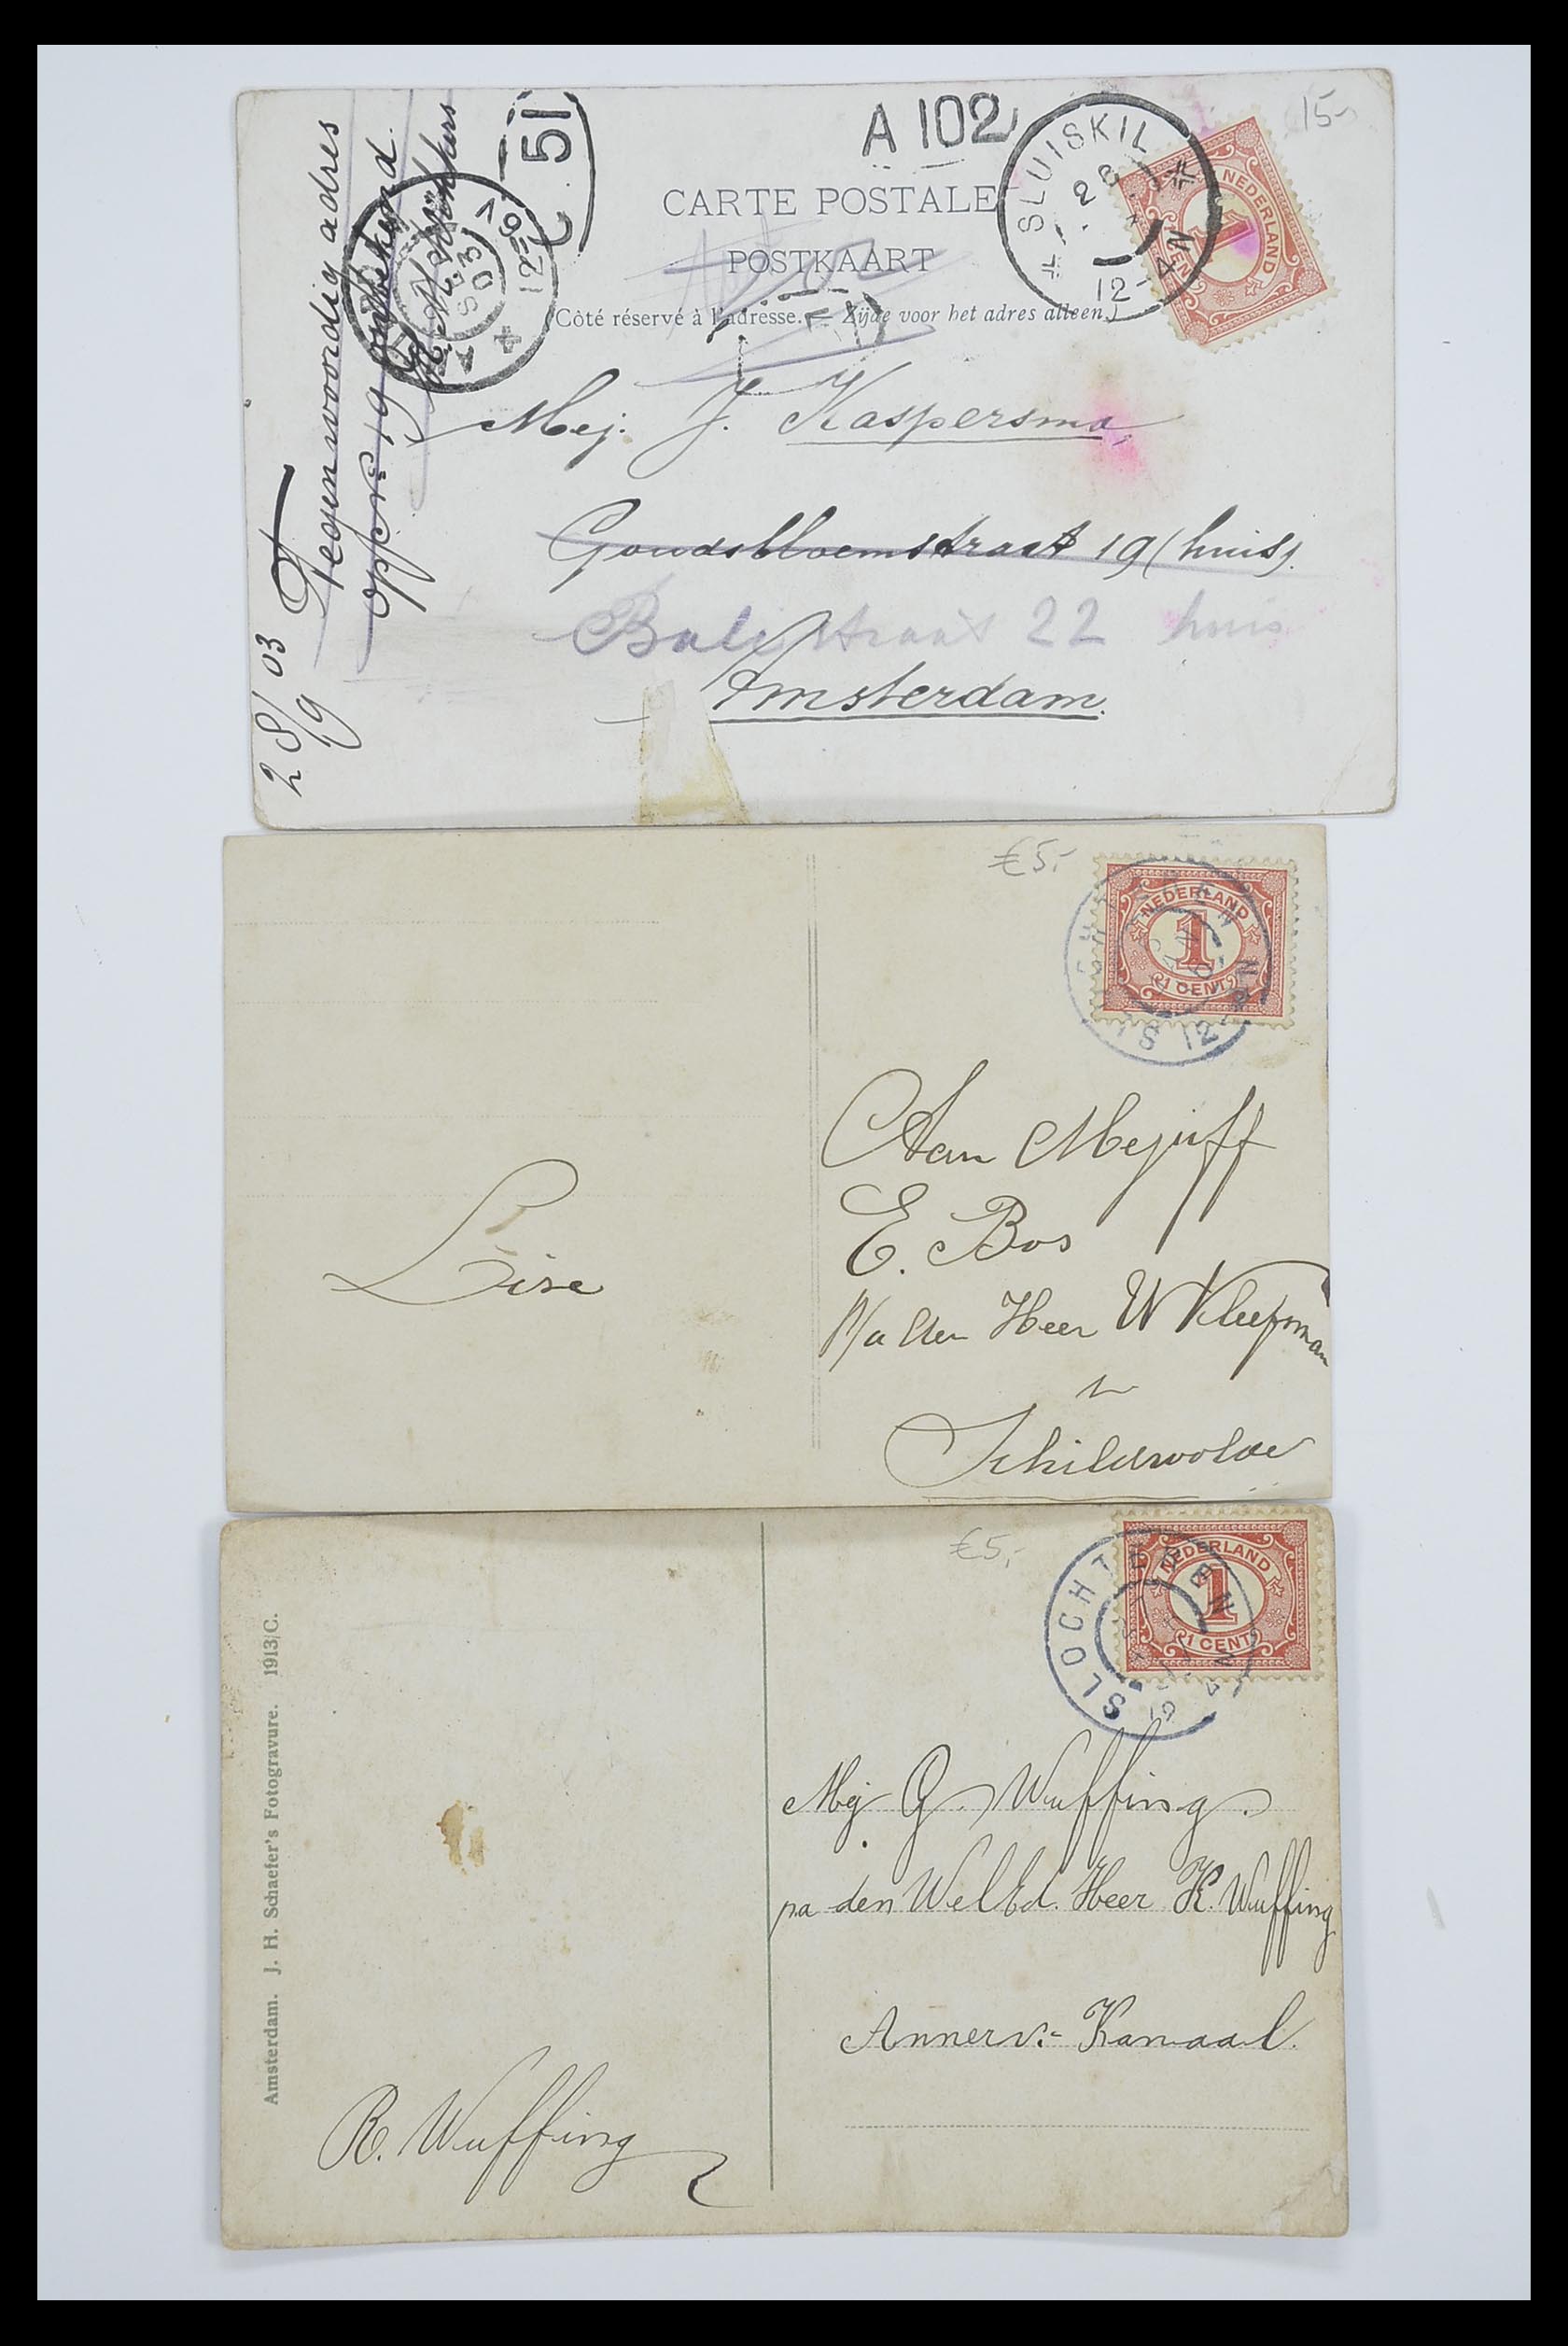 15-
A 102
51
SLUISKIL
12-4N
NEDERLAND
1
CENT
CARTE POSTALE
POSTKAART
(Côté réservé à l'adresse. — Zijde voor het adres alleen.)
SEP
03
12-6
Mej. J. Kaspersma,
Goudsbloemstraat 19 (huis).
Balistraat 22 huis
Amsterdam.
28/9 03
Tegenwoordig adres
op no 19 onbekend.
€5,-
NEDERLAND
1
1 CENT
12-4N
Aan Mejuff
E. Bos
p/a den Heer W Kleefsman
te
Schildwolde
Lise
€5,-
SLOCHTEREN
NEDERLAND
1
1 CENT
Mej G. Wuffing.
pa den WelEd. Heer K. Wuffing
Annerv:- Kanaal.
R. Wuffing
Amsterdam. J. H. Schaefer's Fotogravure. 1913/C.